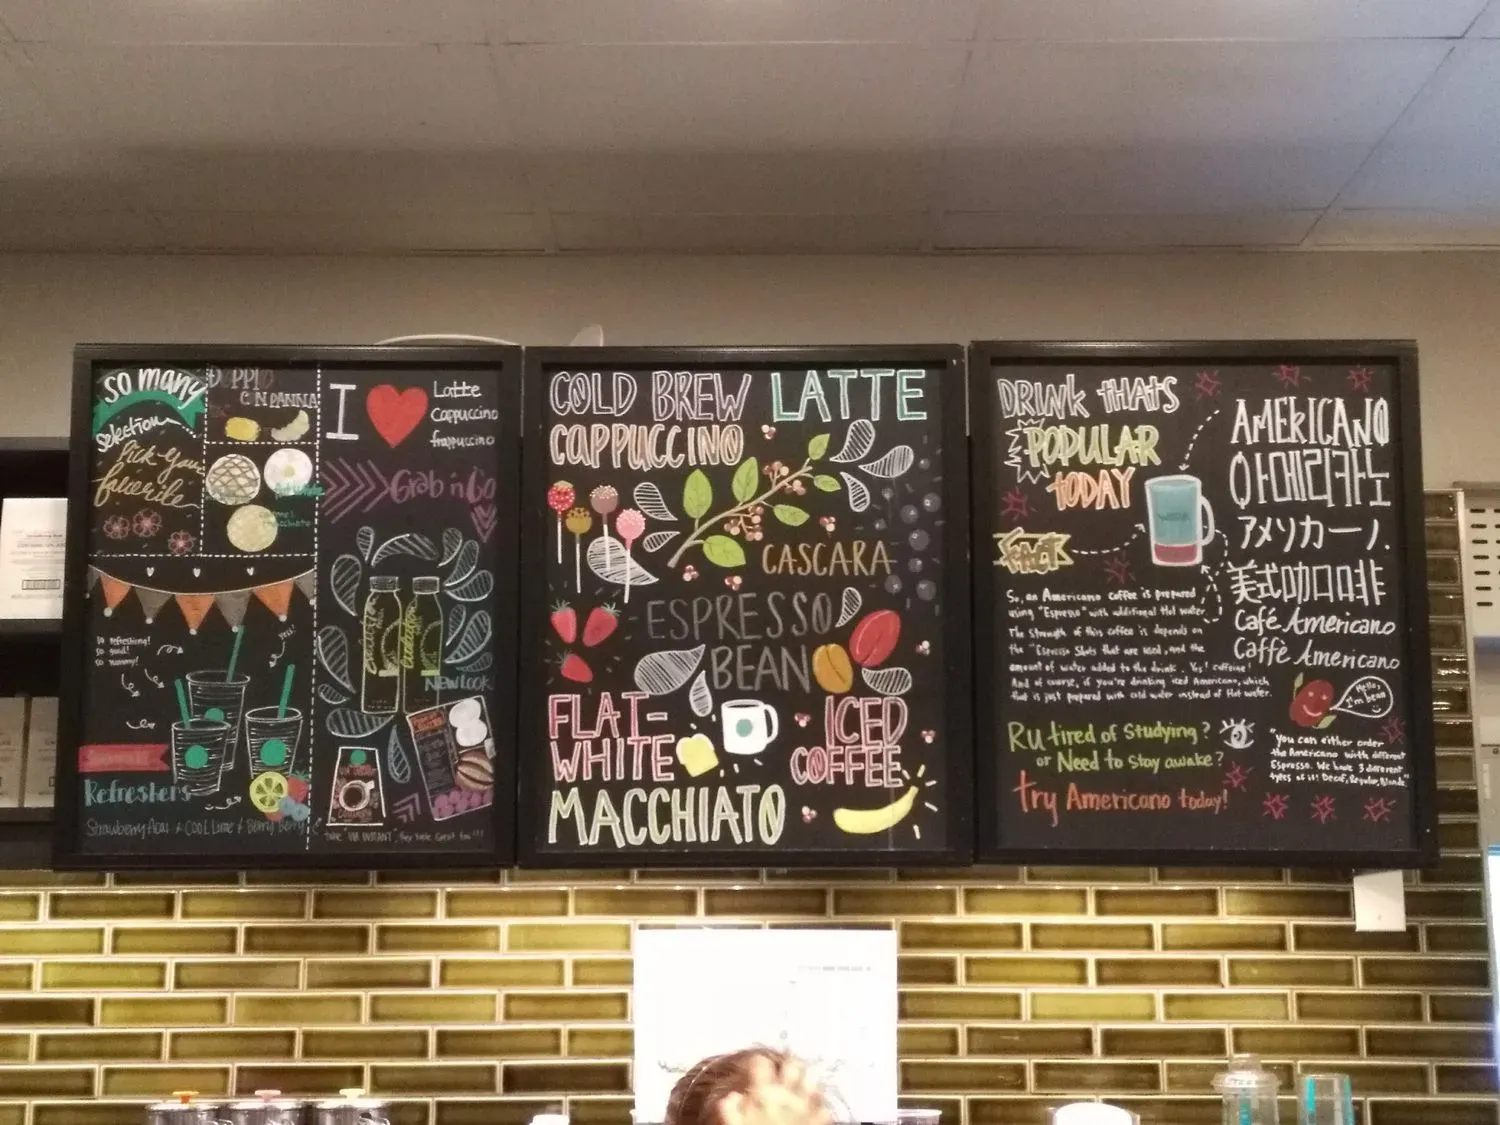 SO MANY
Selection
Pick your
favorite
DOPPIO
CON PANNA
I
Latte
Cappuccino
frappuccino
Grab n Go
NEW LOOK
so refreshing!
so good!
so yummy!
yes!
Refreshers
Strawberry Acai & COOL Lime & Berry Berry
COLD BREW LATTE
CAPPUCCINO
CASCARA
ESPRESSO
BEAN
FLAT-
WHITE
ICED
COFFEE
MACCHIATO
DRINK thATS
POPULAR
TODAY
FACT
WATER
So, an Americano coffee is prepared
using "Espresso" with additional Hot water.
The strength of this coffee is depends on
the "Espresso Shots that are used, and the
amount of water added to the drink. Yes! caffeine!
And of course, if you're drinking iced Americano, which
that is just prepared with cold water instead of Hot water.
Ru tired of Studying?
or Need to stay awake?
try Americano today!
AMERICANO
아메리카노
アメリカーノ.
美式咖啡
Café Americano
Caffè Americano
Hello,
I'm bean
"you can either order
the Americano with different
Espresso. We have 3 different
types of it! Decaf, Regular, Blonde."